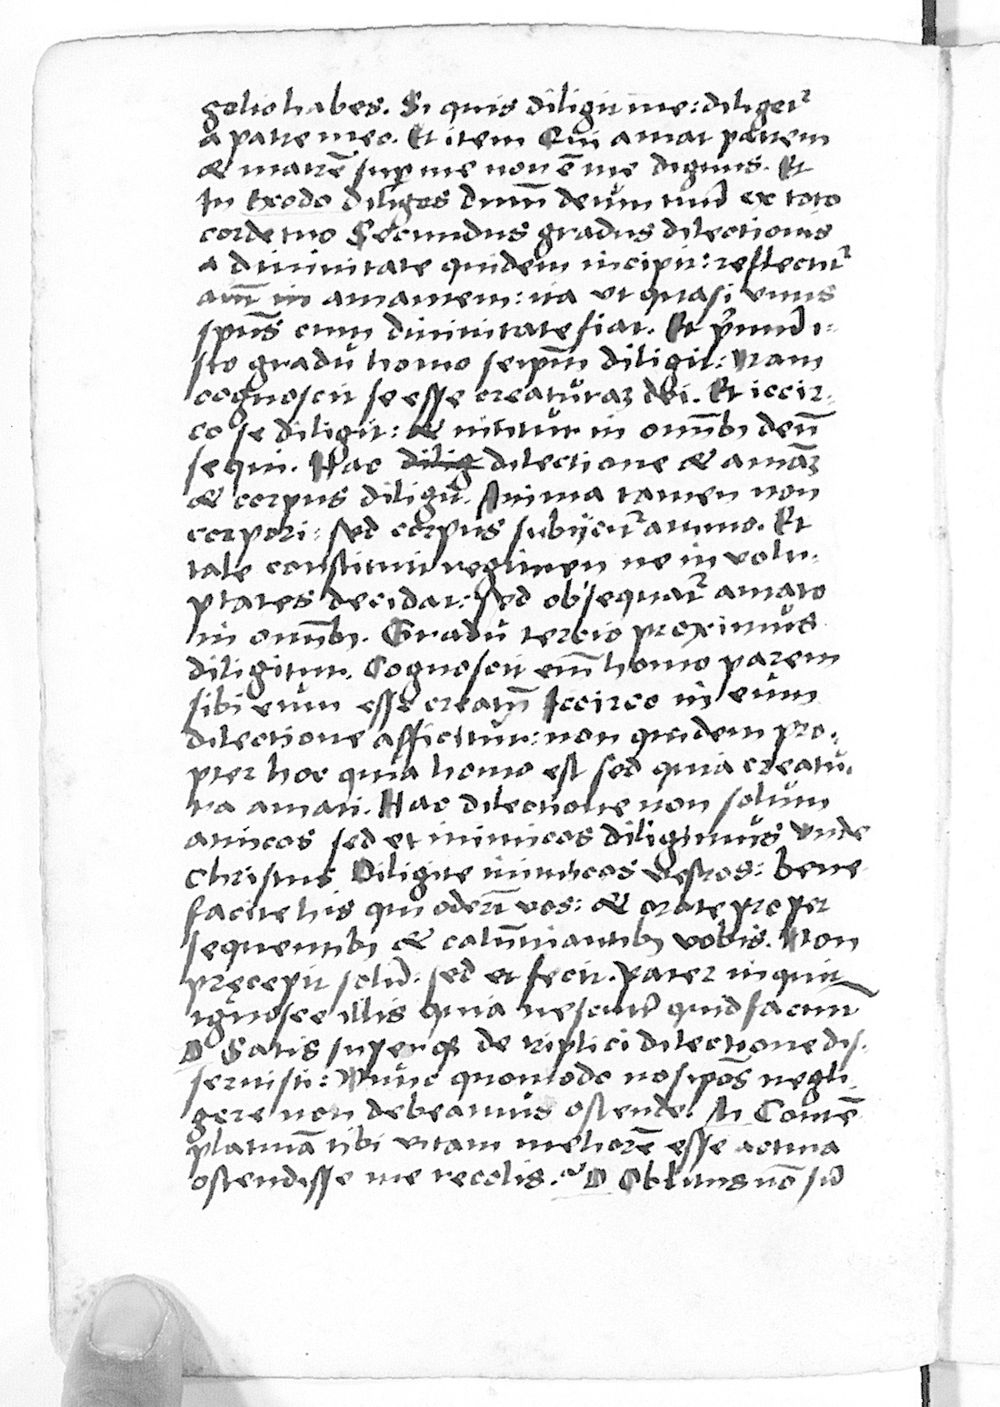 gelio habes. Si quis diligit me: diliget᷑
a patre meo. Et item Qui amat patrem
& matrē sup me non ē me dignus. Et
In Exodo diliges dnm̄ deum tuū ex toto
corde tuo Secundus gradus dilectionis
a diuinitate quidem incipit: reflectit᷑
aūt in amantem: ita vt quasi vnus
spūs cum diuinitate fiat. Et p̄mum i-
sto gradu homo seipm̄ diligit: Nam
cognoscit se esse creaturaꝫ dei. Et iccir-
co se diligit: & nititur in omībꝫ deū
sequi. Hac dilig dilectione & amāꝫ
& corpus diligit. Anima tamen non
corpori: sed corpus subijcit᷑ animo. Et
tale constituit regimen ne in volu-
ptates decidat: sed obsequat᷑ amato
in omībꝫ. Gradu tercio proximus
diligitur. Cognoscit enī homo parem
sibi eum esse creatū Iccirco in eum
dilectione afficitur: non quidem pro-
pter hoc quia homo est sed quia creatu-
ra amati. Hac dilectione non solum
amicos sed et inimicos diligimus vnde
Christus Diligite inimicos vestros: bene
facite his qui oderūt vos: & orate pro per
sequentibꝫ & calūniantibꝫ vobis. Non
pręcepit solū: sed et fecit. Pater inquit
ignosce illis quia nesciūt quid faciunt
D Satis superqꝫ de triplici dilectione dis-
seruisti: Nunc quomodo nosipōs negli
gere non debeamus ostende. M Contē
platiuā tibi vitam meliorē esse actiua
ostendisse me recolis. D Oblitus nō sū